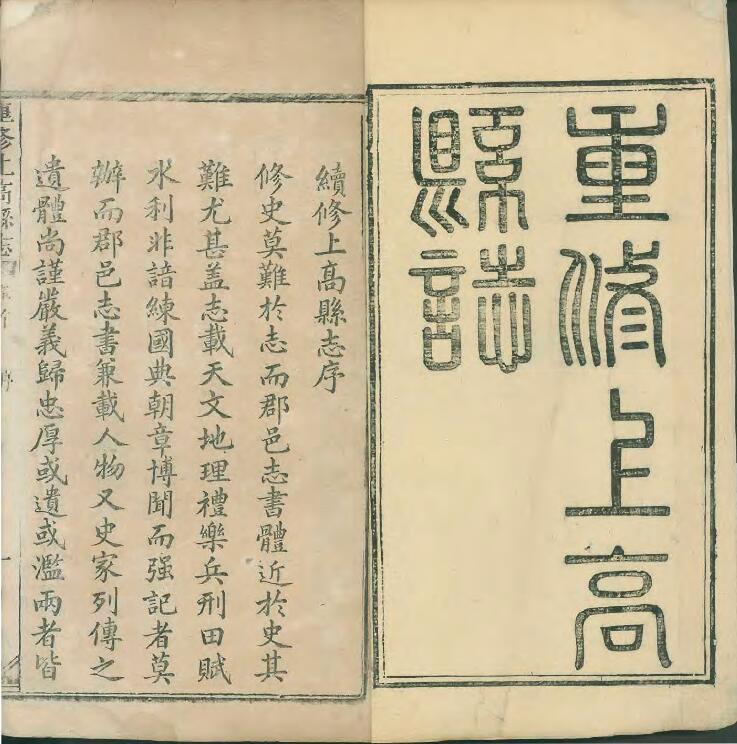 重修上高
縣誌
續修上高縣志序
修史莫難於志而郡邑志書體近於史其
難尤甚盖志載天文地理禮樂兵刑田賦
水利非諳練國典朝章博聞而强記者莫
辦而郡邑志書兼載人物又史家列傳之
遺體尚謹嚴義歸忠厚或遺或濫兩者皆
重修上高縣志